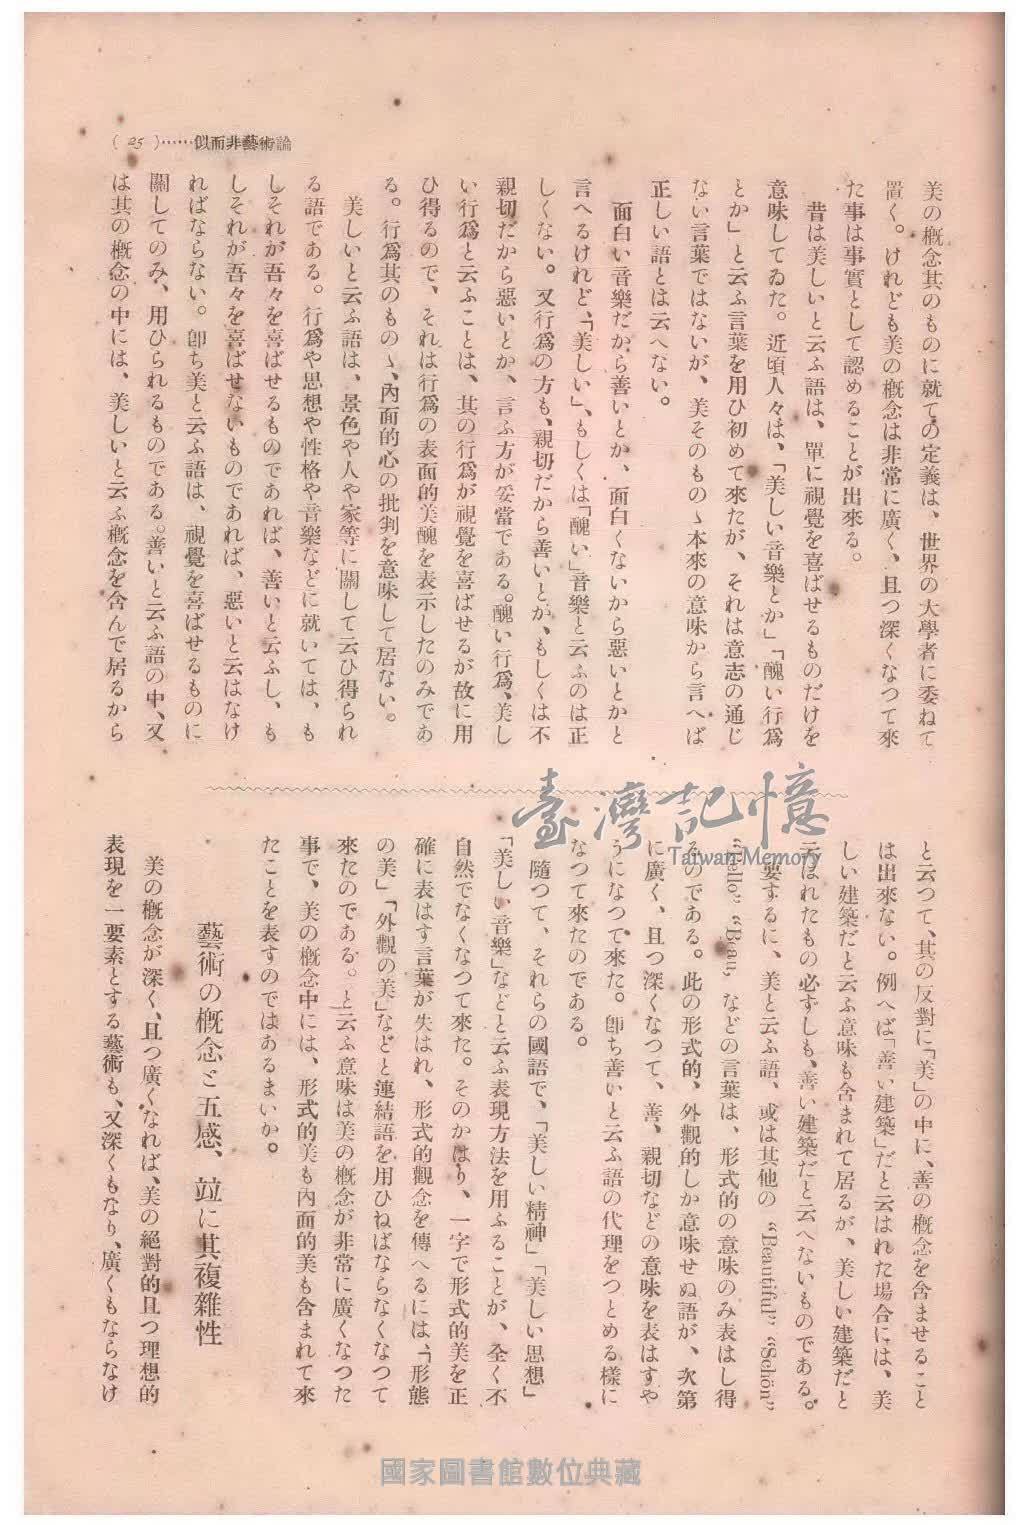 (25)……似而非藝術論
美の概念其のものに就ての定義は、世界の大學者に委ねて
置く。けれども美の概念は非常に廣く、且つ深くなつて來
た事は事實として認めることが出來る。
昔は美しいと云ふ語は、單に視覺を喜ばせるものだけを
意味してゐた。近頃人々は、「美しい音樂とか」「醜い行爲
とか」と云ふ言葉を用ひ初めて來たが、それは意志の通じ
ない言葉ではないが、美そのものゝ本來の意味から言へば
正しい語とは云へない。
面白い音樂だから善いとか、面白くないから惡いとかと
言へるけれど、「美しい」、もしくは「醜い」音樂と云ふのは正
しくない。又行爲の方も、親切だから善いとか、もしくは不
親切だから惡いとか、言ふ方が妥當である。醜い行爲、美し
い行爲と云ふことは、其の行爲が視覺を喜ばせるが故に用
ひ得るので、それは行爲の表面的美醜を表示したのみであ
る。行爲其のものゝ、內面的心の批判を意味して居ない。
美しいと云ふ語は、景色や人や家等に關して云ひ得られ
る語である。行爲や思想や性格や音樂などに就いては、も
しそれが吾々を喜ばせるものであれば、善いと云ふし、も
しそれが吾々を喜ばせないものであれば、惡いと云はなけ
ればならない。卽ち美と云ふ語は、視覺を喜ばせるものに
關してのみ、用ひられるものである。善いと云ふ語の中、又
は其の概念の中には、美しいと云ふ概念を含んで居るから
と云つて、其の反對に「美」の中に、善の概念を含ませること
は出來ない。例へば「善い建築」だと云はれた場合には、美
しい建築だと云ふ意味も含まれて居るが、美しい建築だと
云はれたもの必ずしも、善い建築だと云へないものである。
要するに、美と云ふ語、或は其他の “Beautiful” “Schön”
“Bello” “Beau” などの言葉は、形式的の意味のみ表はし得
るのである。此の形式的、外觀的しか意味せぬ語が、次第
に廣く、且つ深くなつて、善、親切などの意味を表はすや
うになつて來た。卽ち善いと云ふ語の代理をつとめる樣に
なつて來たのである。
隨つて、それらの國語で、「美しい精神」「美しい思想」
「美しい音樂」などと云ふ表現方法を用ふることが、全く不
自然でなくなつて來た。そのかはり、一字で形式的美を正
確に表はす言葉が失はれ、形式的觀念を傳へるには、「形態
の美」「外觀の美」などと連結語を用ひねばならなくなつて
來たのである。と云ふ意味は美の概念が非常に廣くなつた
事で、美の概念中には、形式的美も內面的美も含まれて來
たことを表すのではあるまいか。
藝術の概念と五感、竝に其複雜性
美の概念が深く、且つ廣くなれば、美の絕對的且つ理想的
表現を一要素とする藝術も、又深くもなり、廣くもならなけ
臺灣記憶
Taiwan Memory
國家圖書館數位典藏